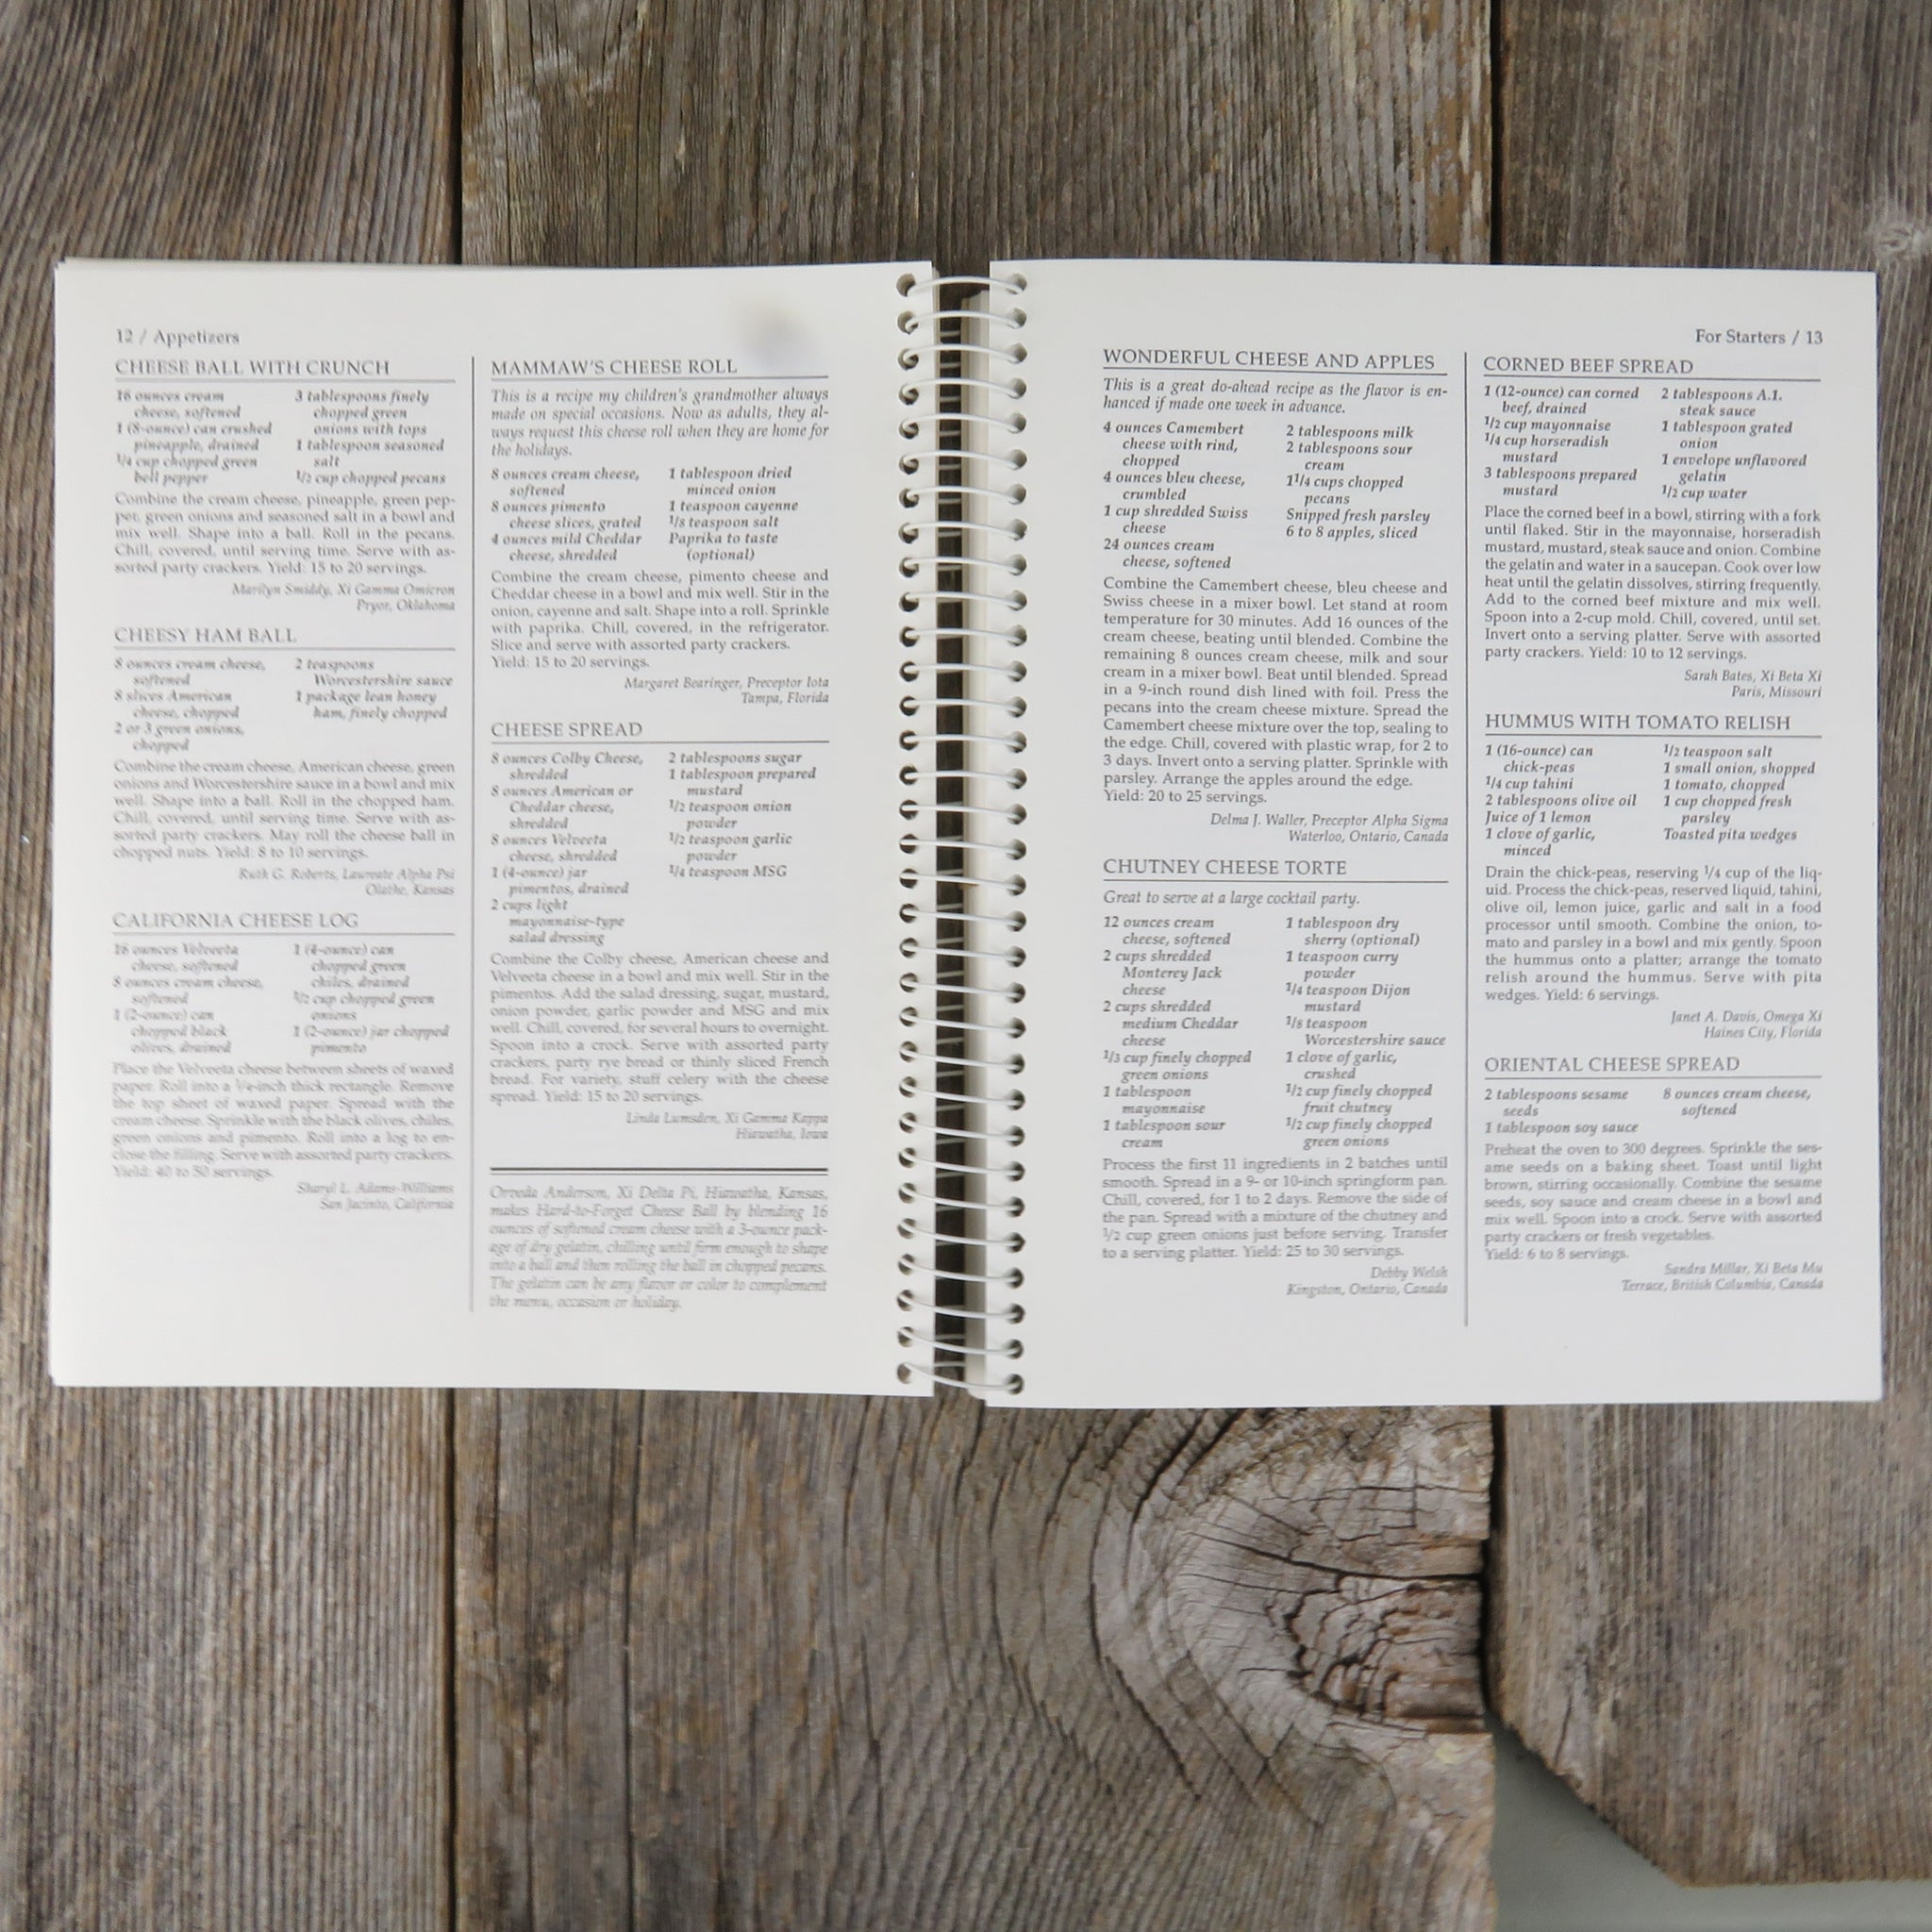 12 / Appetizers
CHEESE BALL WITH CRUNCH
16 ounces cream
cheese, softened
1 (8-ounce) can crushed
pineapple, drained
1/4 cup chopped green
bell pepper
3 tablespoons finely
chopped green
onions with tops
1 tablespoon seasoned
salt
1/2 cup chopped pecans
Combine the cream cheese, pineapple, green pep-
per, green onions and seasoned salt in a bowl and
mix well. Shape into a ball. Roll in the pecans.
Chill, covered, until serving time. Serve with as-
sorted party crackers. Yield: 15 to 20 servings.
Marilyn Smiddy, Xi Gamma Omicron
Pryor, Oklahoma
CHEESY HAM BALL
8 ounces cream cheese,
softened
8 slices American
cheese, chopped
2 or 3 green onions,
chopped
2 teaspoons
Worcestershire sauce
1 package lean honey
ham, finely chopped
Combine the cream cheese, American cheese, green
onions and Worcestershire sauce in a bowl and mix
well. Shape into a ball. Roll in the chopped ham.
Chill, covered, until serving time. Serve with as-
sorted party crackers. May roll the cheese ball in
chopped nuts. Yield: 8 to 10 servings.
Ruth G. Roberts, Laureate Alpha Psi
Olathe, Kansas
CALIFORNIA CHEESE LOG
16 ounces Velveeta
cheese, softened
8 ounces cream cheese,
softened
1 (2-ounce) can
chopped black
olives, drained
1 (4-ounce) can
chopped green
chiles, drained
1/2 cup chopped green
onions
1 (2-ounce) jar chopped
pimento
Place the Velveeta cheese between sheets of waxed
paper. Roll into a 1/4-inch thick rectangle. Remove
the top sheet of waxed paper. Spread with the
cream cheese. Sprinkle with the black olives, chiles,
green onions and pimento. Roll into a log to en-
close the filling. Serve with assorted party crackers.
Yield: 40 to 50 servings.
Sharyl L. Adams-Williams
San Jacinto, California
MAMMAW'S CHEESE ROLL
This is a recipe my children's grandmother always
made on special occasions. Now as adults, they al-
ways request this cheese roll when they are home for
the holidays.
8 ounces cream cheese,
softened
8 ounces pimento
cheese slices, grated
4 ounces mild Cheddar
cheese, shredded
1 tablespoon dried
minced onion
1 teaspoon cayenne
1/8 teaspoon salt
Paprika to taste
(optional)
Combine the cream cheese, pimento cheese and
Cheddar cheese in a bowl and mix well. Stir in the
onion, cayenne and salt. Shape into a roll. Sprinkle
with paprika. Chill, covered, in the refrigerator.
Slice and serve with assorted party crackers.
Yield: 15 to 20 servings.
Margaret Bearinger, Preceptor Iota
Tampa, Florida
CHEESE SPREAD
8 ounces Colby Cheese,
shredded
8 ounces American or
Cheddar cheese,
shredded
8 ounces Velveeta
cheese, shredded
1 (4-ounce) jar
pimentos, drained
2 cups light
mayonnaise-type
salad dressing
2 tablespoons sugar
1 tablespoon prepared
mustard
1/2 teaspoon onion
powder
1/2 teaspoon garlic
powder
1/4 teaspoon MSG
Combine the Colby cheese, American cheese and
Velveeta cheese in a bowl and mix well. Stir in the
pimentos. Add the salad dressing, sugar, mustard,
onion powder, garlic powder and MSG and mix
well. Chill, covered, for several hours to overnight.
Spoon into a crock. Serve with assorted party
crackers, party rye bread or thinly sliced French
bread. For variety, stuff celery with the cheese
spread. Yield: 15 to 20 servings.
Linda Lumsden, Xi Gamma Kappa
Hiawatha, Iowa
Orveda Anderson, Xi Delta Pi, Hiawatha, Kansas,
makes Hard-to-Forget Cheese Ball by blending 16
ounces of softened cream cheese with a 3-ounce pack-
age of dry gelatin, chilling until firm enough to shape
into a ball and then rolling the ball in chopped pecans.
The gelatin can be any flavor or color to complement
the menu, occasion or holiday.
For Starters / 13
WONDERFUL CHEESE AND APPLES
This is a great do-ahead recipe as the flavor is en-
hanced if made one week in advance.
4 ounces Camembert
cheese with rind,
chopped
4 ounces bleu cheese,
crumbled
1 cup shredded Swiss
cheese
24 ounces cream
cheese, softened
2 tablespoons milk
2 tablespoons sour
cream
1 1/4 cups chopped
pecans
Snipped fresh parsley
6 to 8 apples, sliced
Combine the Camembert cheese, bleu cheese and
Swiss cheese in a mixer bowl. Let stand at room
temperature for 30 minutes. Add 16 ounces of the
cream cheese, beating until blended. Combine the
remaining 8 ounces cream cheese, milk and sour
cream in a mixer bowl. Beat until blended. Spread
in a 9-inch round dish lined with foil. Press the
pecans into the cream cheese mixture. Spread the
Camembert cheese mixture over the top, sealing to
the edge. Chill, covered with plastic wrap, for 2 to
3 days. Invert onto a serving platter. Sprinkle with
parsley. Arrange the apples around the edge.
Yield: 20 to 25 servings.
Delma J. Waller, Preceptor Alpha Sigma
Waterloo, Ontario, Canada
CHUTNEY CHEESE TORTE
Great to serve at a large cocktail party.
12 ounces cream
cheese, softened
2 cups shredded
Monterey Jack
cheese
2 cups shredded
medium Cheddar
cheese
1/3 cup finely chopped
green onions
1 tablespoon
mayonnaise
1 tablespoon sour
cream
1 tablespoon dry
sherry (optional)
1 teaspoon curry
powder
1/4 teaspoon Dijon
mustard
1/8 teaspoon
Worcestershire sauce
1 clove of garlic,
crushed
1/2 cup finely chopped
fruit chutney
1/2 cup finely chopped
green onions
Process the first 11 ingredients in 2 batches until
smooth. Spread in a 9- or 10-inch springform pan.
Chill, covered, for 1 to 2 days. Remove the side of
the pan. Spread with a mixture of the chutney and
1/2 cup green onions just before serving. Transfer
to a serving platter. Yield: 25 to 30 servings.
Debby Welsh
Kingston, Ontario, Canada
CORNED BEEF SPREAD
1 (12-ounce) can corned
beef, drained
1/2 cup mayonnaise
1/4 cup horseradish
mustard
3 tablespoons prepared
mustard
2 tablespoons A.1.
steak sauce
1 tablespoon grated
onion
1 envelope unflavored
gelatin
1/2 cup water
Place the corned beef in a bowl, stirring with a fork
until flaked. Stir in the mayonnaise, horseradish
mustard, mustard, steak sauce and onion. Combine
the gelatin and water in a saucepan. Cook over low
heat until the gelatin dissolves, stirring frequently.
Add to the corned beef mixture and mix well.
Spoon into a 2-cup mold. Chill, covered, until set.
Invert onto a serving platter. Serve with assorted
party crackers. Yield: 10 to 12 servings.
Sarah Bates, Xi Beta Xi
Paris, Missouri
HUMMUS WITH TOMATO RELISH
1 (16-ounce) can
chick-peas
1/4 cup tahini
2 tablespoons olive oil
Juice of 1 lemon
1 clove of garlic,
minced
1/2 teaspoon salt
1 small onion, shopped
1 tomato, chopped
1 cup chopped fresh
parsley
Toasted pita wedges
Drain the chick-peas, reserving 1/4 cup of the liq-
uid. Process the chick-peas, reserved liquid, tahini,
olive oil, lemon juice, garlic and salt in a food
processor until smooth. Combine the onion, to-
mato and parsley in a bowl and mix gently. Spoon
the hummus onto a platter; arrange the tomato
relish around the hummus. Serve with pita
wedges. Yield: 6 servings.
Janet A. Davis, Omega Xi
Haines City, Florida
ORIENTAL CHEESE SPREAD
2 tablespoons sesame
seeds
1 tablespoon soy sauce
8 ounces cream cheese,
softened
Preheat the oven to 300 degrees. Sprinkle the ses-
ame seeds on a baking sheet. Toast until light
brown, stirring occasionally. Combine the sesame
seeds, soy sauce and cream cheese in a bowl and
mix well. Spoon into a crock. Serve with assorted
party crackers or fresh vegetables.
Yield: 6 to 8 servings.
Sandra Millar, Xi Beta Mu
Terrace, British Columbia, Canada